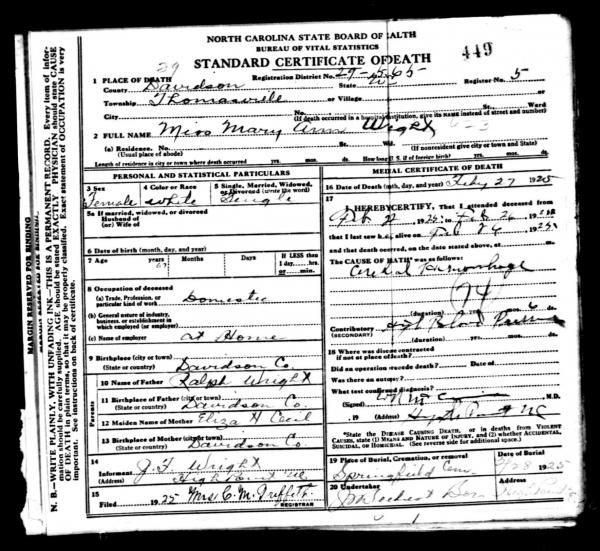 NORTH CAROLINA STATE BOARD OF HEALTH
BUREAU OF VITAL STATISTICS
STANDARD CERTIFICATE OF DEATH
449
39
1 PLACE OF DEATH
Registration District No. 29-5565
Register No. 5
County Davidson State
Township Thomasville or Village
City No. St., Ward
(If death occurred in a hospital or institution, give its NAME instead of street and number)
2 FULL NAME Miss Mary Ann Wright
(a) Residence. No. St. Wd.
(Usual place of abode) (If nonresident give city or town and State)
Length of residence in city or town where death occurred yrs. mos. ds. How long U. S. if of foreign birth? yrs. mos. ds.
PERSONAL AND STATISTICAL PARTICULARS
3 Sex 4 Color or Race 5 Single, Married, Widowed, or Divorced (write the word)
Female white Single
5a If married, widowed, or divorced
Husband of
(or) Wife of
6 Date of birth (month, day, and year)
7 Age years Months Days If LESS than
1 day, hrs.
or min.
8 Occupation of deceased
(a) Trade, Profession, or
particular kind of work Domestic
(b) General nature of industry,
business, or establishment in
which employed (or employer)
(c) Name of employer at Home
9 Birthplace (city or town)
(State or country) Davidson Co.
Parents
10 Name of Father Ralph Wright
11 Birthplace of Father (city or town)
(State or country) Davidson Co.
12 Maiden Name of Mother Eliza H Cecil
13 Birthplace of Mother (city or town)
(State or country) Davidson Co.
14
Informant J. F. Wright
(Address) High Point NC
15
Filed 1925 Mrs. C. M. Griffith
REGISTRAR
MEDICAL CERTIFICATE OF DEATH
16 Date of Death (month, day, and year) Feby 27 1925
17
I HEREBY CERTIFY, That I attended deceased from
1925, to Feb. 26, 1925
that I last saw h alive on Feb 26, 1925
and that death occurred, on the date stated above, at m.
The CAUSE OF DEATH* was as follows:
Cerebral Hemorrhage
74
(duration) yrs. mos. 6 ds.
Contributory Blood Pressure
(SECONDARY)
(duration) yrs. mos. ds.
18 Where was disease contracted
if not at place of death?
Did an operation precede death? Date of
Was there an autopsy?
What test confirmed diagnosis?
(Signed) M.D.
, 19 (Address) High Point NC
*State the DISEASE CAUSING DEATH, or in deaths from VIOLENT
CAUSES, state (1) MEANS AND NATURE OF INJURY, and (2) whether ACCIDENTAL,
SUICIDAL, or HOMICIDAL. (See reverse side for additional space.)
19 Place of Burial, Cremation, or removal Date of Burial
Springfield Cem. 28 1925
20 Undertaker
MARGIN RESERVED FOR BINDING
N. B.—WRITE PLAINLY, WITH UNFADING INK—THIS IS A PERMANENT RECORD. Every item of information should be carefully supplied. AGE should be stated EXACTLY. PHYSICIAN should state CAUSE OF DEATH in plain terms, so that it may be properly classified. Exact statement of OCCUPATION is very important. See instructions on back of certificate.